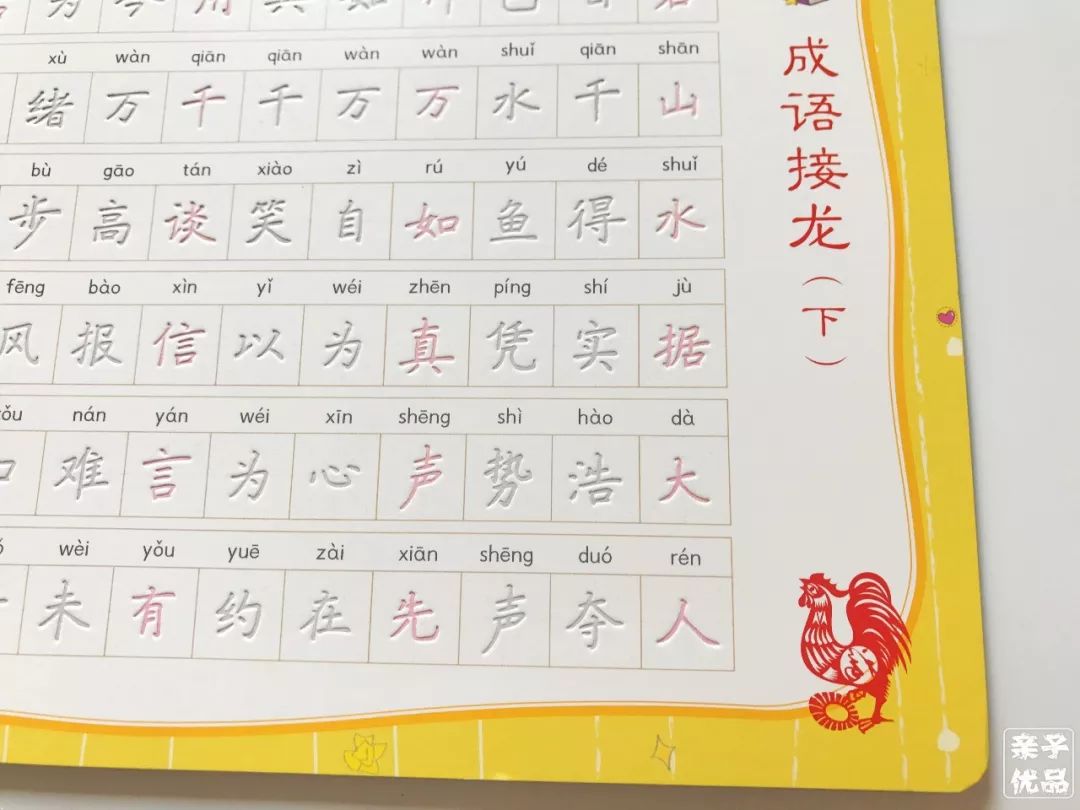 为 今 用
xù wàn qiān qiān wàn wàn shuǐ qiān shān
绪 万 千 千 万 万 水 千 山
bù gāo tán xiào zì rú yú dé shuǐ
步 高 谈 笑 自 如 鱼 得 水
fēng bào xìn yǐ wéi zhēn píng shí jù
风 报 信 以 为 真 凭 实 据
nán yán wéi xīn shēng shì hào dà
难 言 为 心 声 势 浩 大
wèi yǒu yuē zài xiān shēng duó rén
未 有 约 在 先 声 夺 人
成语接龙（下）
亲子
优品